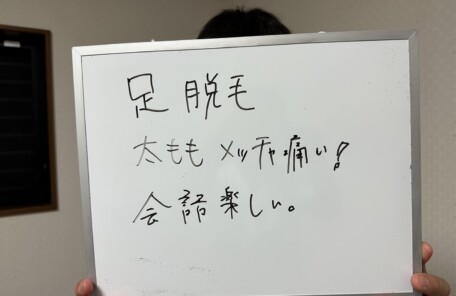 足脱毛
太もも メッチャ痛い!
会話楽しい。